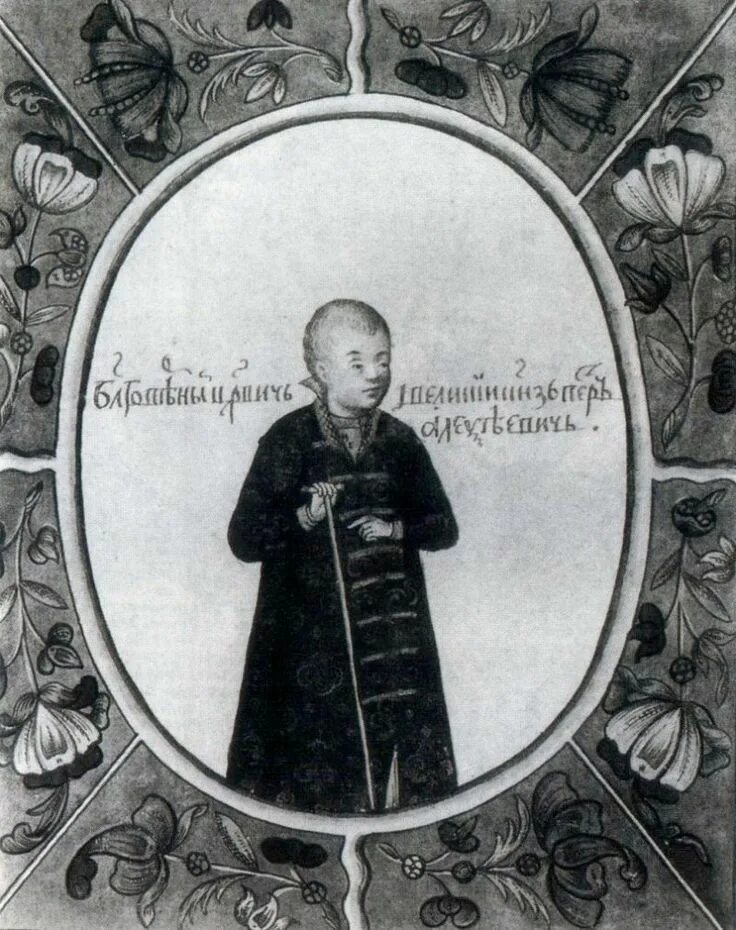 БЛГОВѢНЫ ЦРВИЧЬ I ВЕЛИКИИ КНЗЬ ПЕТРЪ
АЛЕѮѢЕВИЧЬ.